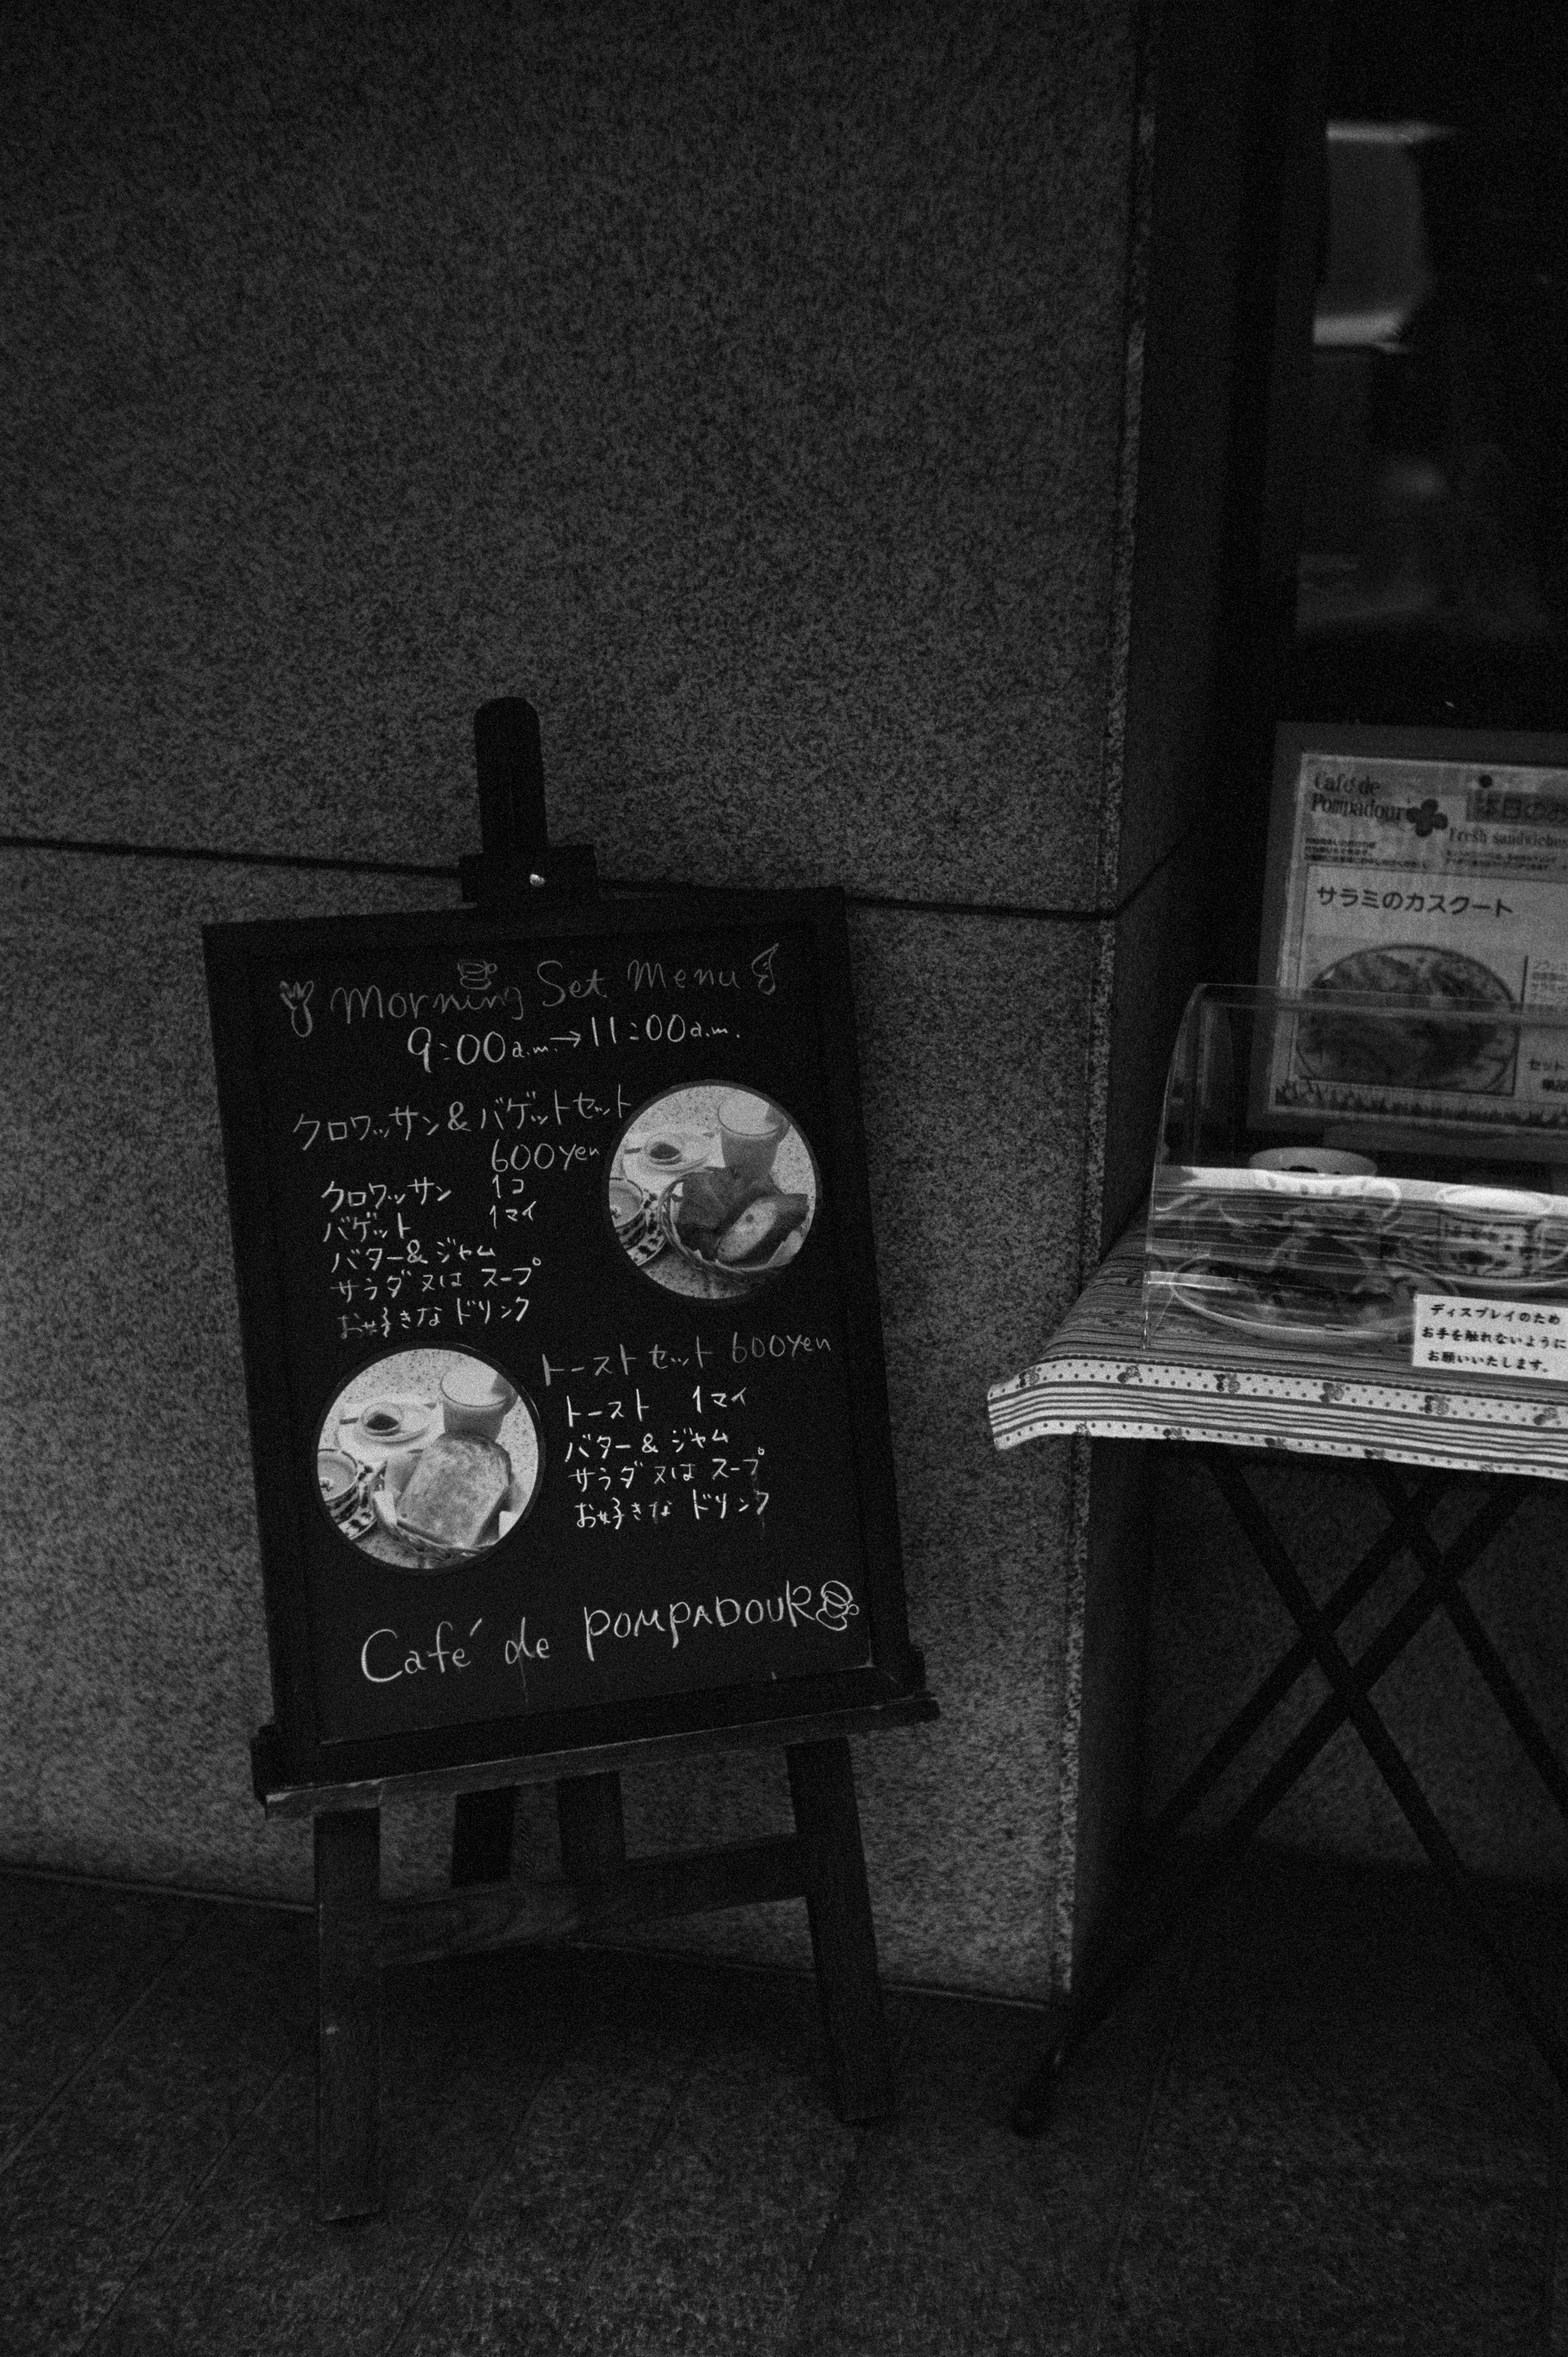 Morning Set Menu
9:00a.m.→11:00a.m.
クロワッサン&バゲットセット
600yen
クロワッサン 1コ
バゲット 1マイ
バター&ジャム
サラダ又はスープ
お好きなドリンク
トーストセット 600yen
トースト 1マイ
バター&ジャム
サラダ又はスープ
お好きなドリンク
Café de POMPADOUR
Café de
Pompadour
本日の
Fresh sandwiches
サラミのカスクート
セット
ディスプレイのため
お手を触れないように
お願いいたします。